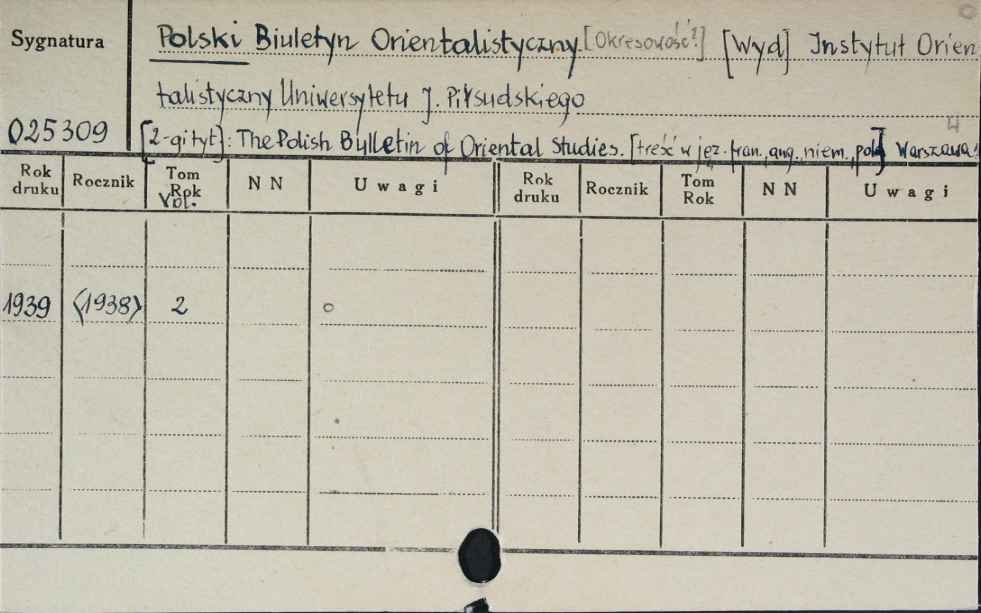 Sygnatura
Polski Biuletyn Orientalistyczny [Okresowość?] [Wyd] Instytut Orien
talistyczny Uniwersytetu J. Piłsudskiego
4
025309
[2-gi tyt]: The Polish Bulletin of Oriental Studies. [treść w jęz. fran., ang., niem., pol.] Warszawa.
Rok druku Rocznik Tom Rok Vol. NN Uwagi Rok druku Rocznik Tom Rok NN Uwagi
1939 <1938> 2 o